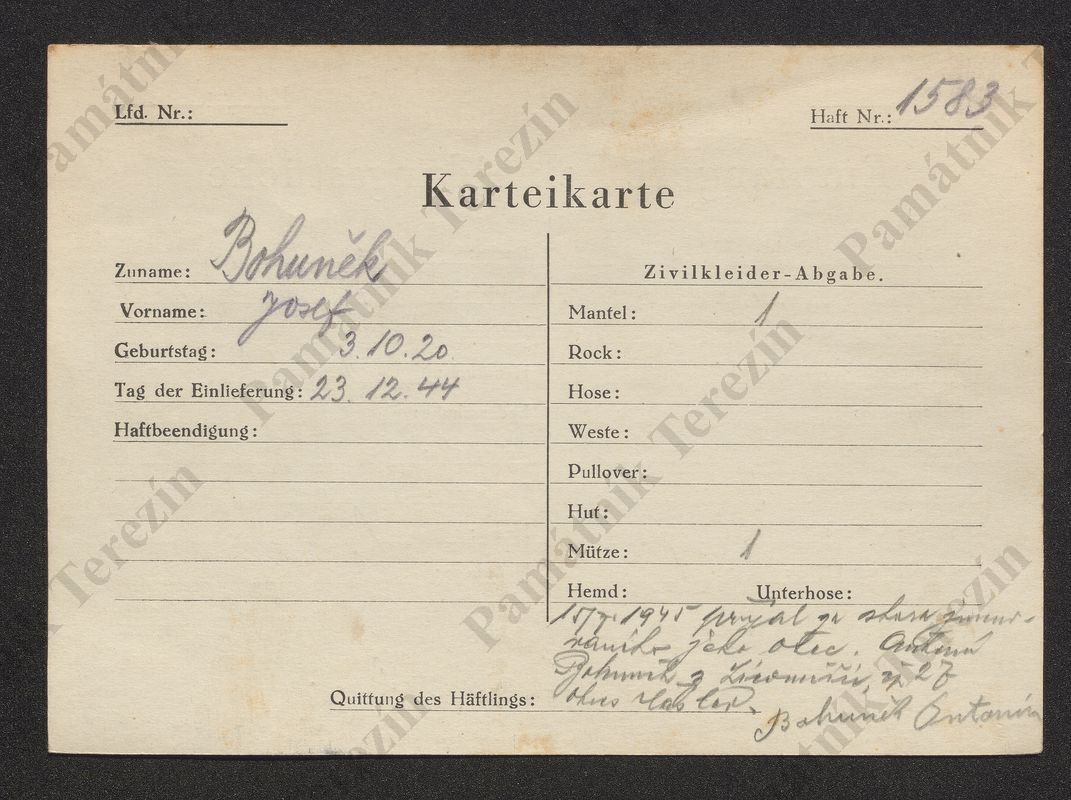 Lfd. Nr.:
Haft Nr.: 1583
Karteikarte
Zuname: Bohuněk
Vorname: Josef
Geburtstag: 3.10.20.
Tag der Einlieferung: 23. 12. 44
Haftbeendigung:
Zivilkleider-Abgabe.
Mantel: 1
Rock:
Hose:
Weste:
Pullover:
Hut:
Mütze: 1
Hemd: Unterhose:
1945 přijal za
jako otec. Antonín
Bohuněk z 27
okres
Quittung des Häftlings:
Bohuněk Antonín
Památník Terezín
Památník Terezín
Památník Terezín
Památník Terezín